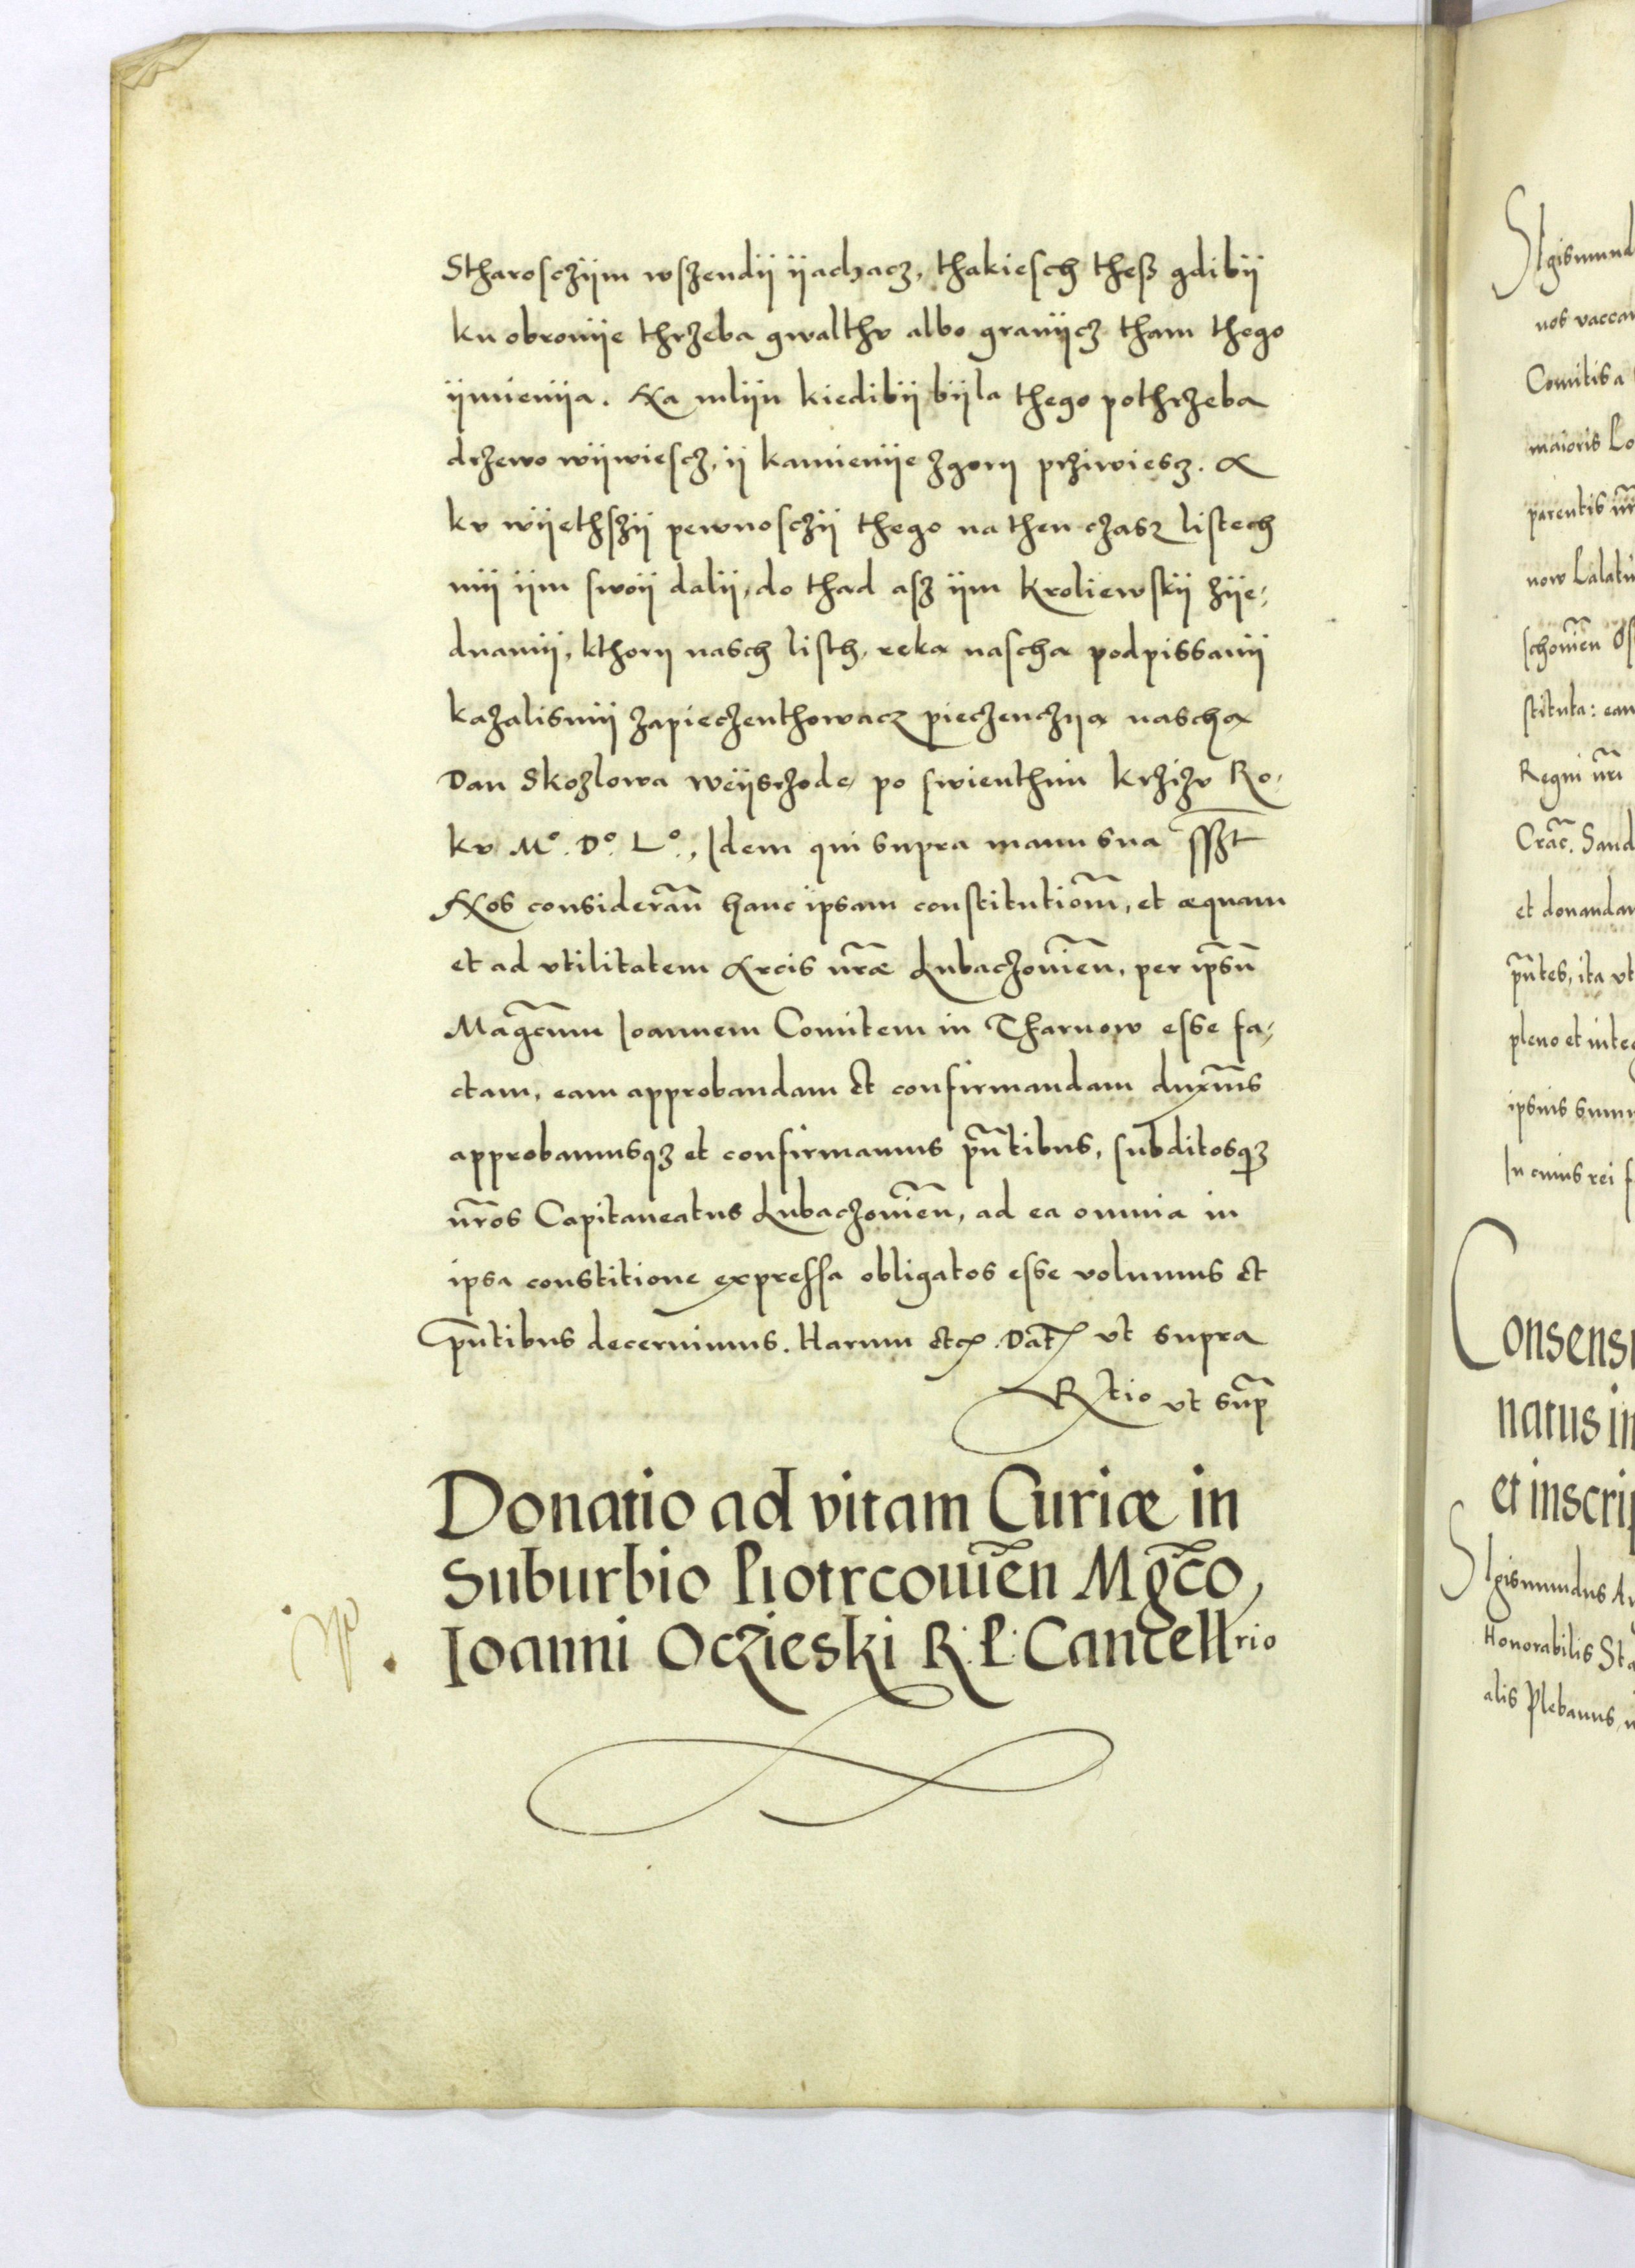 Stharosczÿm wszendÿ ÿachacz, thakiesch thesz gdibÿ
ku obronÿe thrzeba gwalthv albo granÿcz tham thego
ÿmienÿa. Na mlÿn kiedibÿ bÿla thego pothrzeba
drzewo wÿwiescz, ÿ kamienÿe zgorÿ prziwiesz. A
kv wÿethszÿ pewnosczÿ thego na then czasz listech
mÿ ÿm swoÿ dalÿ, do thad asz ÿm kroliewskÿ zÿe,
dnamÿ, kthorÿ nasch listh, reka nascha podpissanÿ
kazalismÿ zapieczenthowacz pieczenczÿa nascha
Dan Skozlowa weÿszrode, po swienthim krzizv Ro,
kv Mº. Dº. Lº., Idem qui supra manu sua sszt
Nos considerañ hanc ipsam constitutioñm, et æquam
et ad vtilitatem Arcis nr̃æ Lubaczovieñ, per ip̃sũ
Mag̃cum Ioannem Comitem in Tharnow esse fa,
ctam, eam approbandam et confirmandam duxim̃s
approbamusqʒ et confirmamus pñtibus, subditosqʒ
nr̃os Capitaneatus Lubaczovieñ, ad ea omnia in
ipsa constitione expressa obligatos esse volumus et
pñtibus decernimus. Harum etc. Dat̃ vt supra
Rtio vt sup̃
Donatio ad vitam Curiæ in
Suburbio Piotrcovieñ Mgc̃o
Ioanni Oczieski R: P: Cancellrio
Sigismund
nos vaccan
Comitis a
maioris Lo
parentis nr̃
now Palati
schovien̄
stituta: eam
Regni nr̃i
Crac̃. Sand
et donandam
pñtes, ita vt
pleno et integ
ipsius
In cuius rei f
Consens
natus in
et inscrip
Sigismundus Au
Honorabilis Sta
alis Plebanus,